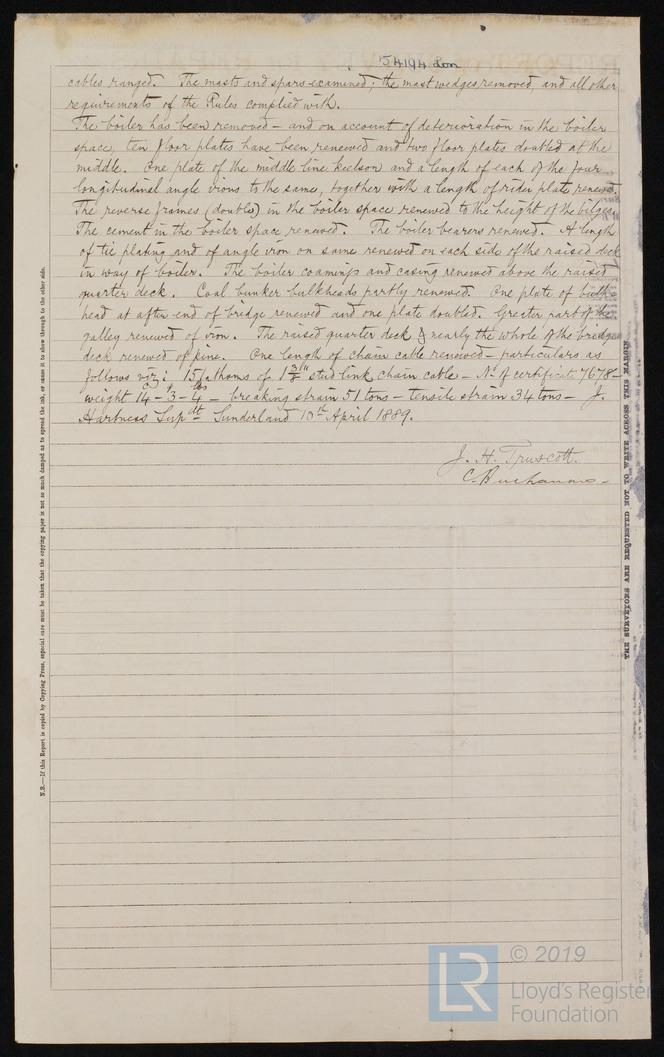 54194 Lon
cables ranged. The masts and spars examined; the mast wedges removed, and all other
requirements of the Rules complied with.
The boiler has been removed – and on account of deterioration in the boiler
space, ten floor plates have been renewed and two floor plates doubled at the
middle. One plate of the middle line keelson and a length of each of the four
longitudinal angle irons to the same, together with a length of rider plate renewed.
The reverse frames (double) in the boiler space renewed to the height of the bilges.
The cement in the boiler space renewed. The boiler bearers renewed. A length
of tie plating and of angle iron on same renewed on each side of the raised deck
in way of boiler. The boiler coamings and casing renewed above the raised
quarter deck. Coal bunker bulkheads partly renewed. One plate of bulk-
head at after end of bridge renewed and one plate doubled. Greater part of the
galley renewed of iron. The raised quarter deck & nearly the whole of the bridge
deck renewed of pine. One length of chain cable renewed – particulars as
follows viz; 15 fathoms of 1 3/" stud link chain cable – No. of certificate 7678 –
weight 14 – 3 – 4 – breaking strain 51 tons – tensile strain 34 tons – J.
Hartness Supdt Sunderland 10th April 1889.
J. H. Truscott.
C. Buchanan
N.B.—If this Report is copied by Copying Press, especial care must be taken that the copying paper is not so much damped as to spread the ink, or cause it to show through to the other side.
THE SURVEYORS ARE REQUESTED NOT TO WRITE ACROSS THIS MARGIN
LR
© 2019
Lloyd's Register
Foundation